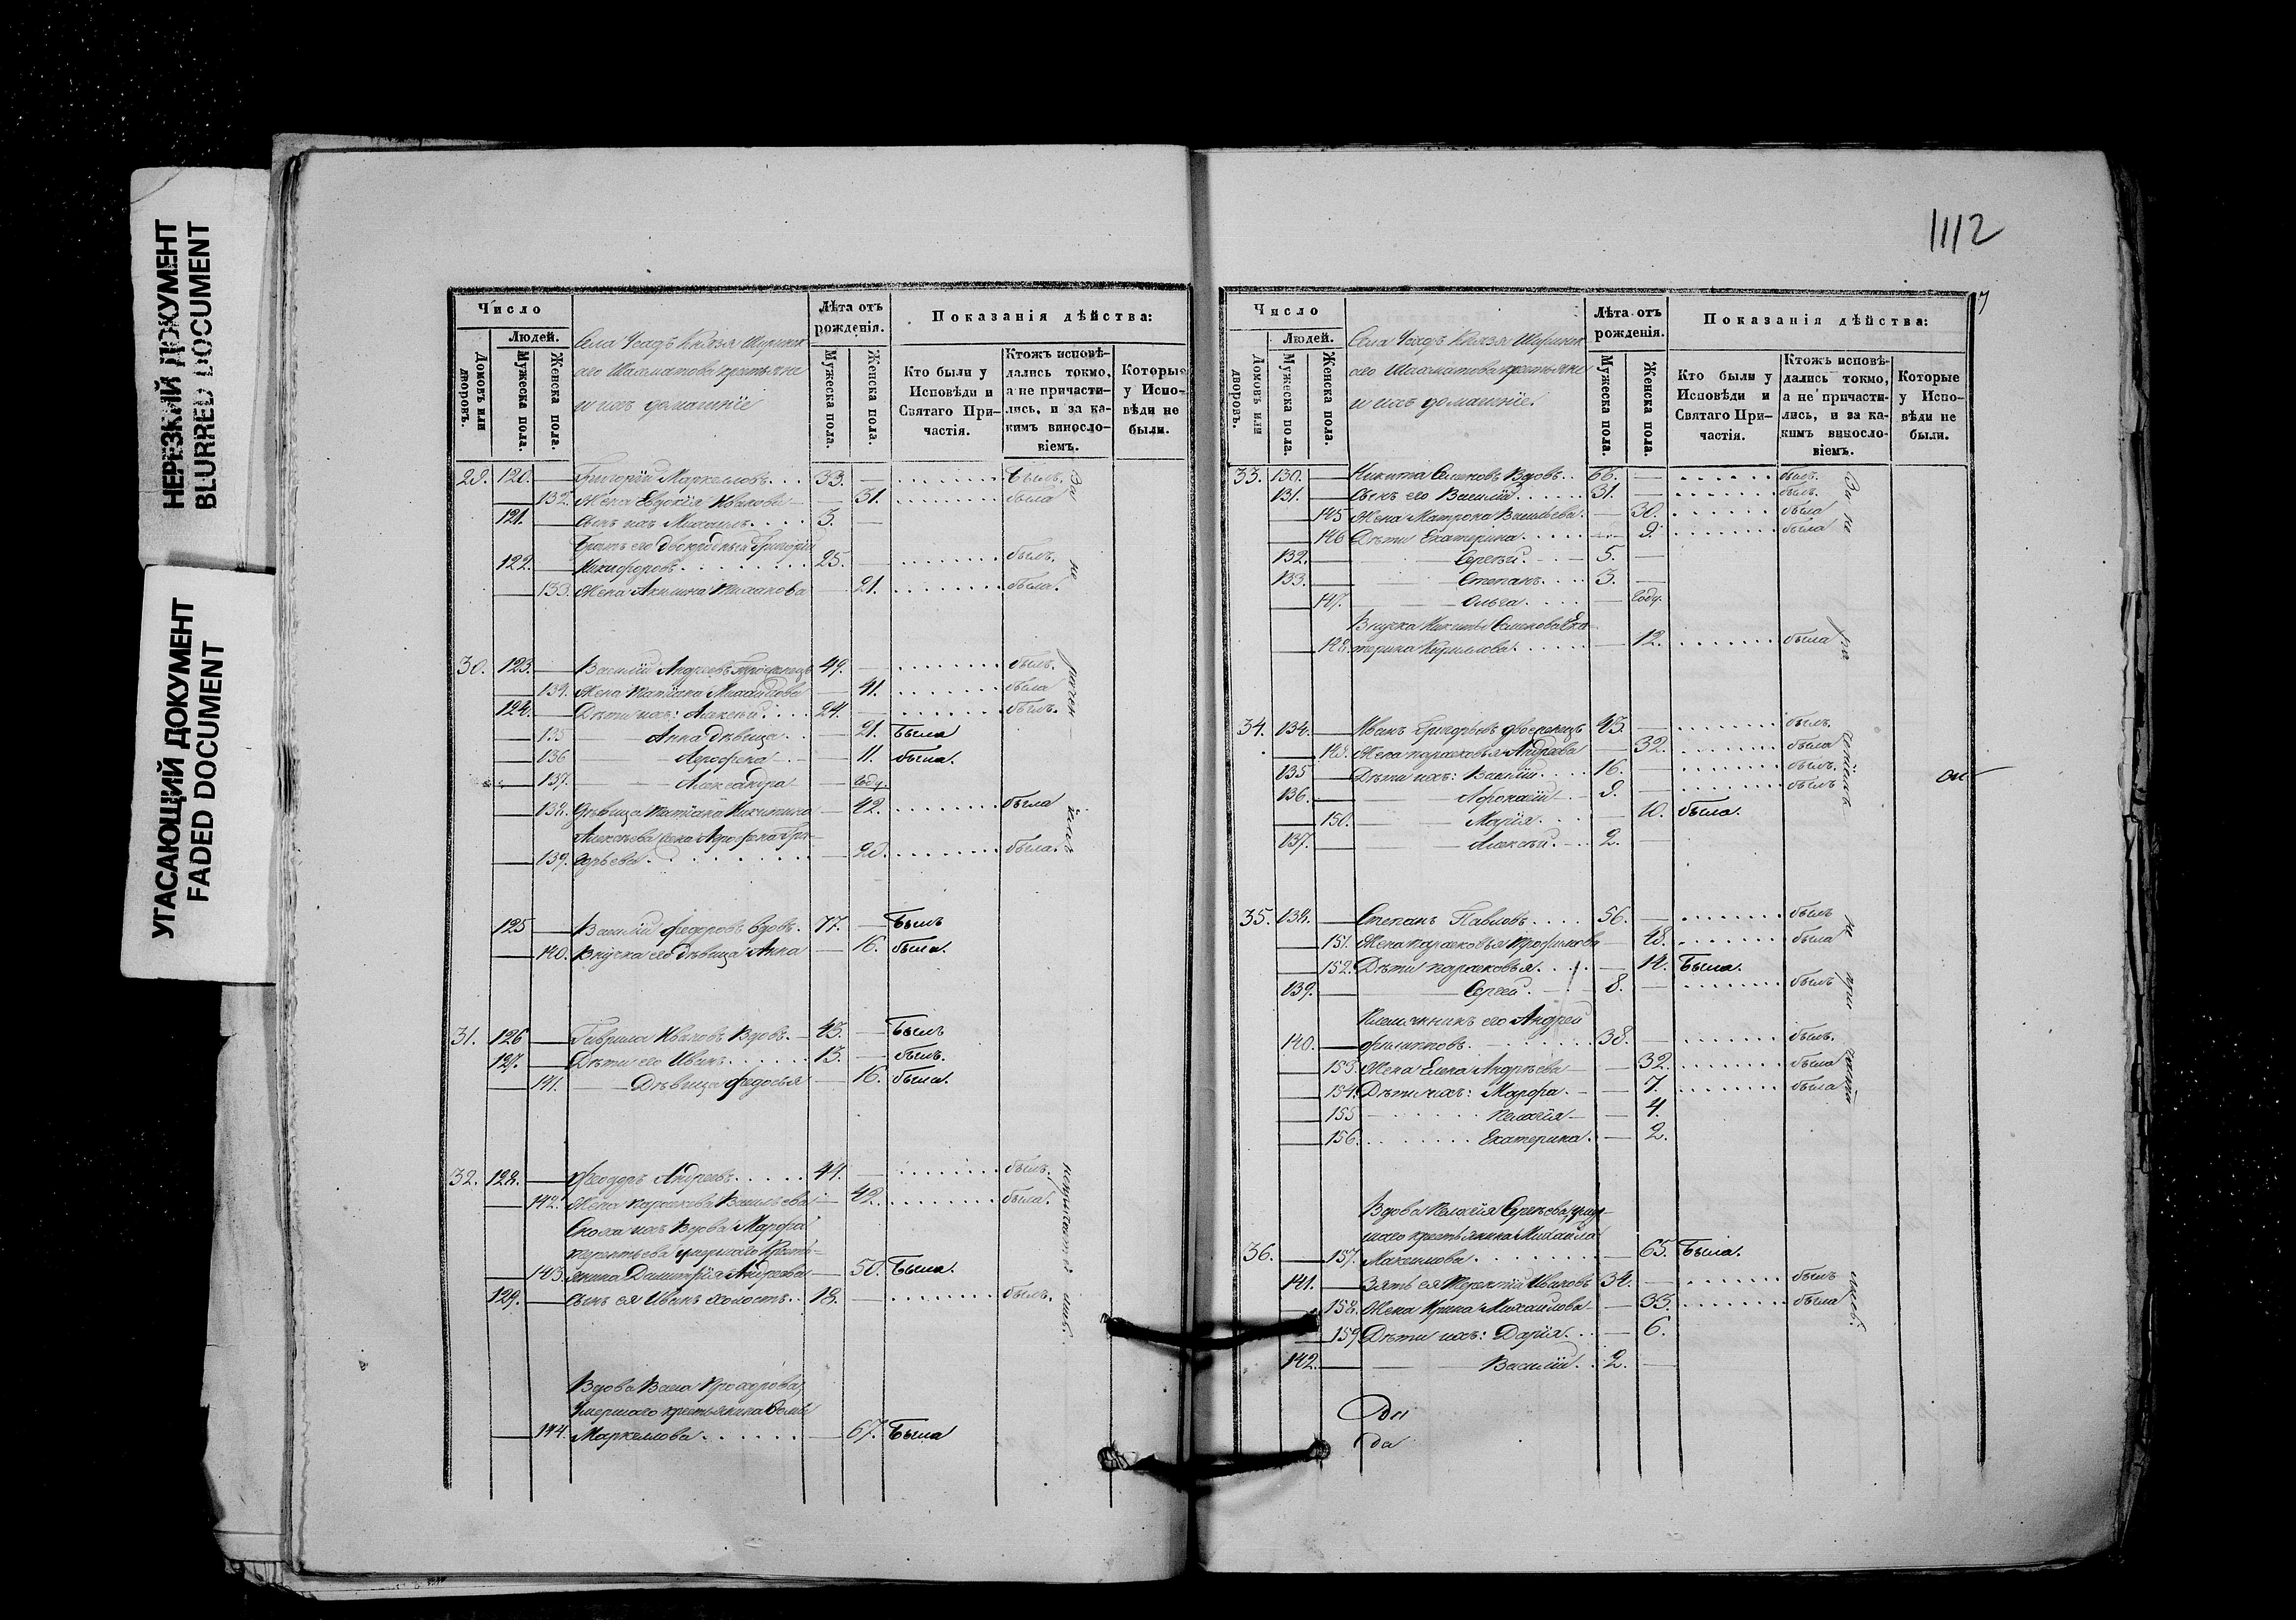 НЕРЕЗКИЙ ДОКУМЕНТ
BLURRED DOCUMENT
УГАСАЮЩИЙ ДОКУМЕНТ
FADED DOCUMENT
Число
Людей.
Домовъ или дворовъ.
Мужеска пола.
Женска пола.
Села Усадъ Князя
Шахматова крестьяне
и ихъ домашніе
Лѣта отъ рожденія.
Мужеска пола.
Женска пола.
Показанія дѣйства:
Кто были у Исповѣди и Святаго Причастія.
Ктожъ исповѣдались токмо, а не причастились, и за какимъ винословіемъ.
Которые у Исповѣди не были.
29. 120. Григорій Маркелловъ. 33. былъ.
132. Жена Евдокія Иванова 31. была
121. Сынъ ихъ Михаилъ. 3.
Братъ его двоюродный Григорій
122. Никифоровъ. 25. былъ.
133. Жена Акилина 21. была.
30. 123. Василій Андреевъ 49. былъ.
134. Жена Татіана Михайлова 41. была
124. Дѣти ихъ: Алексѣй. 24. былъ.
135 Анна дѣвица. 21. Была
136 Агрофена 11. была.
137. Александра году.
138. Дѣвица Татіана Никитина 42. была
Алексѣева жена Агрофена Гри-
139. горьева. 20. была.
125 Василій Федоровъ вдовъ. 77. Былъ
140. Внучка его дѣвица Анна 16. была.
31. 126 Гаврила Ивановъ Вдовъ. 43. Былъ
127. Дѣти его Иванъ. 13. былъ.
141. Дѣвица Федосья 16. была.
32. 128. Феодоръ Андреевъ. 44. былъ.
142. Жена Параскева Васильева 42. была.
Сноха ихъ Вдова Марфа
Терентьева умершаго Кресть-
143. янина Димитрія Андреева 50. Была.
129. Сынъ ея Иванъ холостъ. 18. былъ.
Вдова Васса Прохорова,
Умершаго крестьянина
144. Маркеллова. 67. Была
1112
7
Число
Людей.
Домовъ или дворовъ.
Мужеска пола.
Женска пола.
Села Усадъ Князя
Шахматова крестьяне
и ихъ домашніе.
Лѣта отъ рожденія.
Мужеска пола.
Женска пола.
Показанія дѣйства:
Кто были у Исповѣди и Святаго Причастія.
Ктожъ исповѣдались токмо, а не причастились, и за какимъ винословіемъ.
Которые у Исповѣди не были.
33. 130. Никита Семеновъ Вдовъ. 66. былъ.
131. Сынъ его Василій. 31. былъ.
145 Жена Матрона Васильева. 30. была
146 Дѣти Екатерина. 9. была
132. Сергѣй. 5.
133. Степанъ. 3.
147. Ольга. году.
Внучка Никиты Семенова Ека-
148. терина Кириллова. 12. была
34. 134. Иванъ Григорьевъ 43. былъ.
149. Жена Парасковья Андреева 32. была
135 Дѣти ихъ: Василій. 16. былъ.
136. Афонасій 9. былъ
150. Марія. 10. была.
137. Алексѣй. 2.
35. 138. Степанъ Павловъ. 56. былъ
151. Жена Парасковья 48. была
152. Дѣти Парасковья. 14. Была.
139. Сергей. 8. былъ
Племянникъ его Андрей
140. Филипповъ. 38. былъ.
153. Жена Елена Андреева 32. была
154. Дѣти ихъ: Марфа. 7. была
155 Пелагія 4.
156. Екатерина. 2.
Вдова Пелагія Сергѣева умер-
шаго крестьянина Михаила
36. 157. Максимова. 65. Была.
141. Зять ея Терентій Ивановъ 34. былъ
158. Жена Ирина Михайлова 33. была
159 Дѣти ихъ: Дарія. 6.
142. Василій. 2.